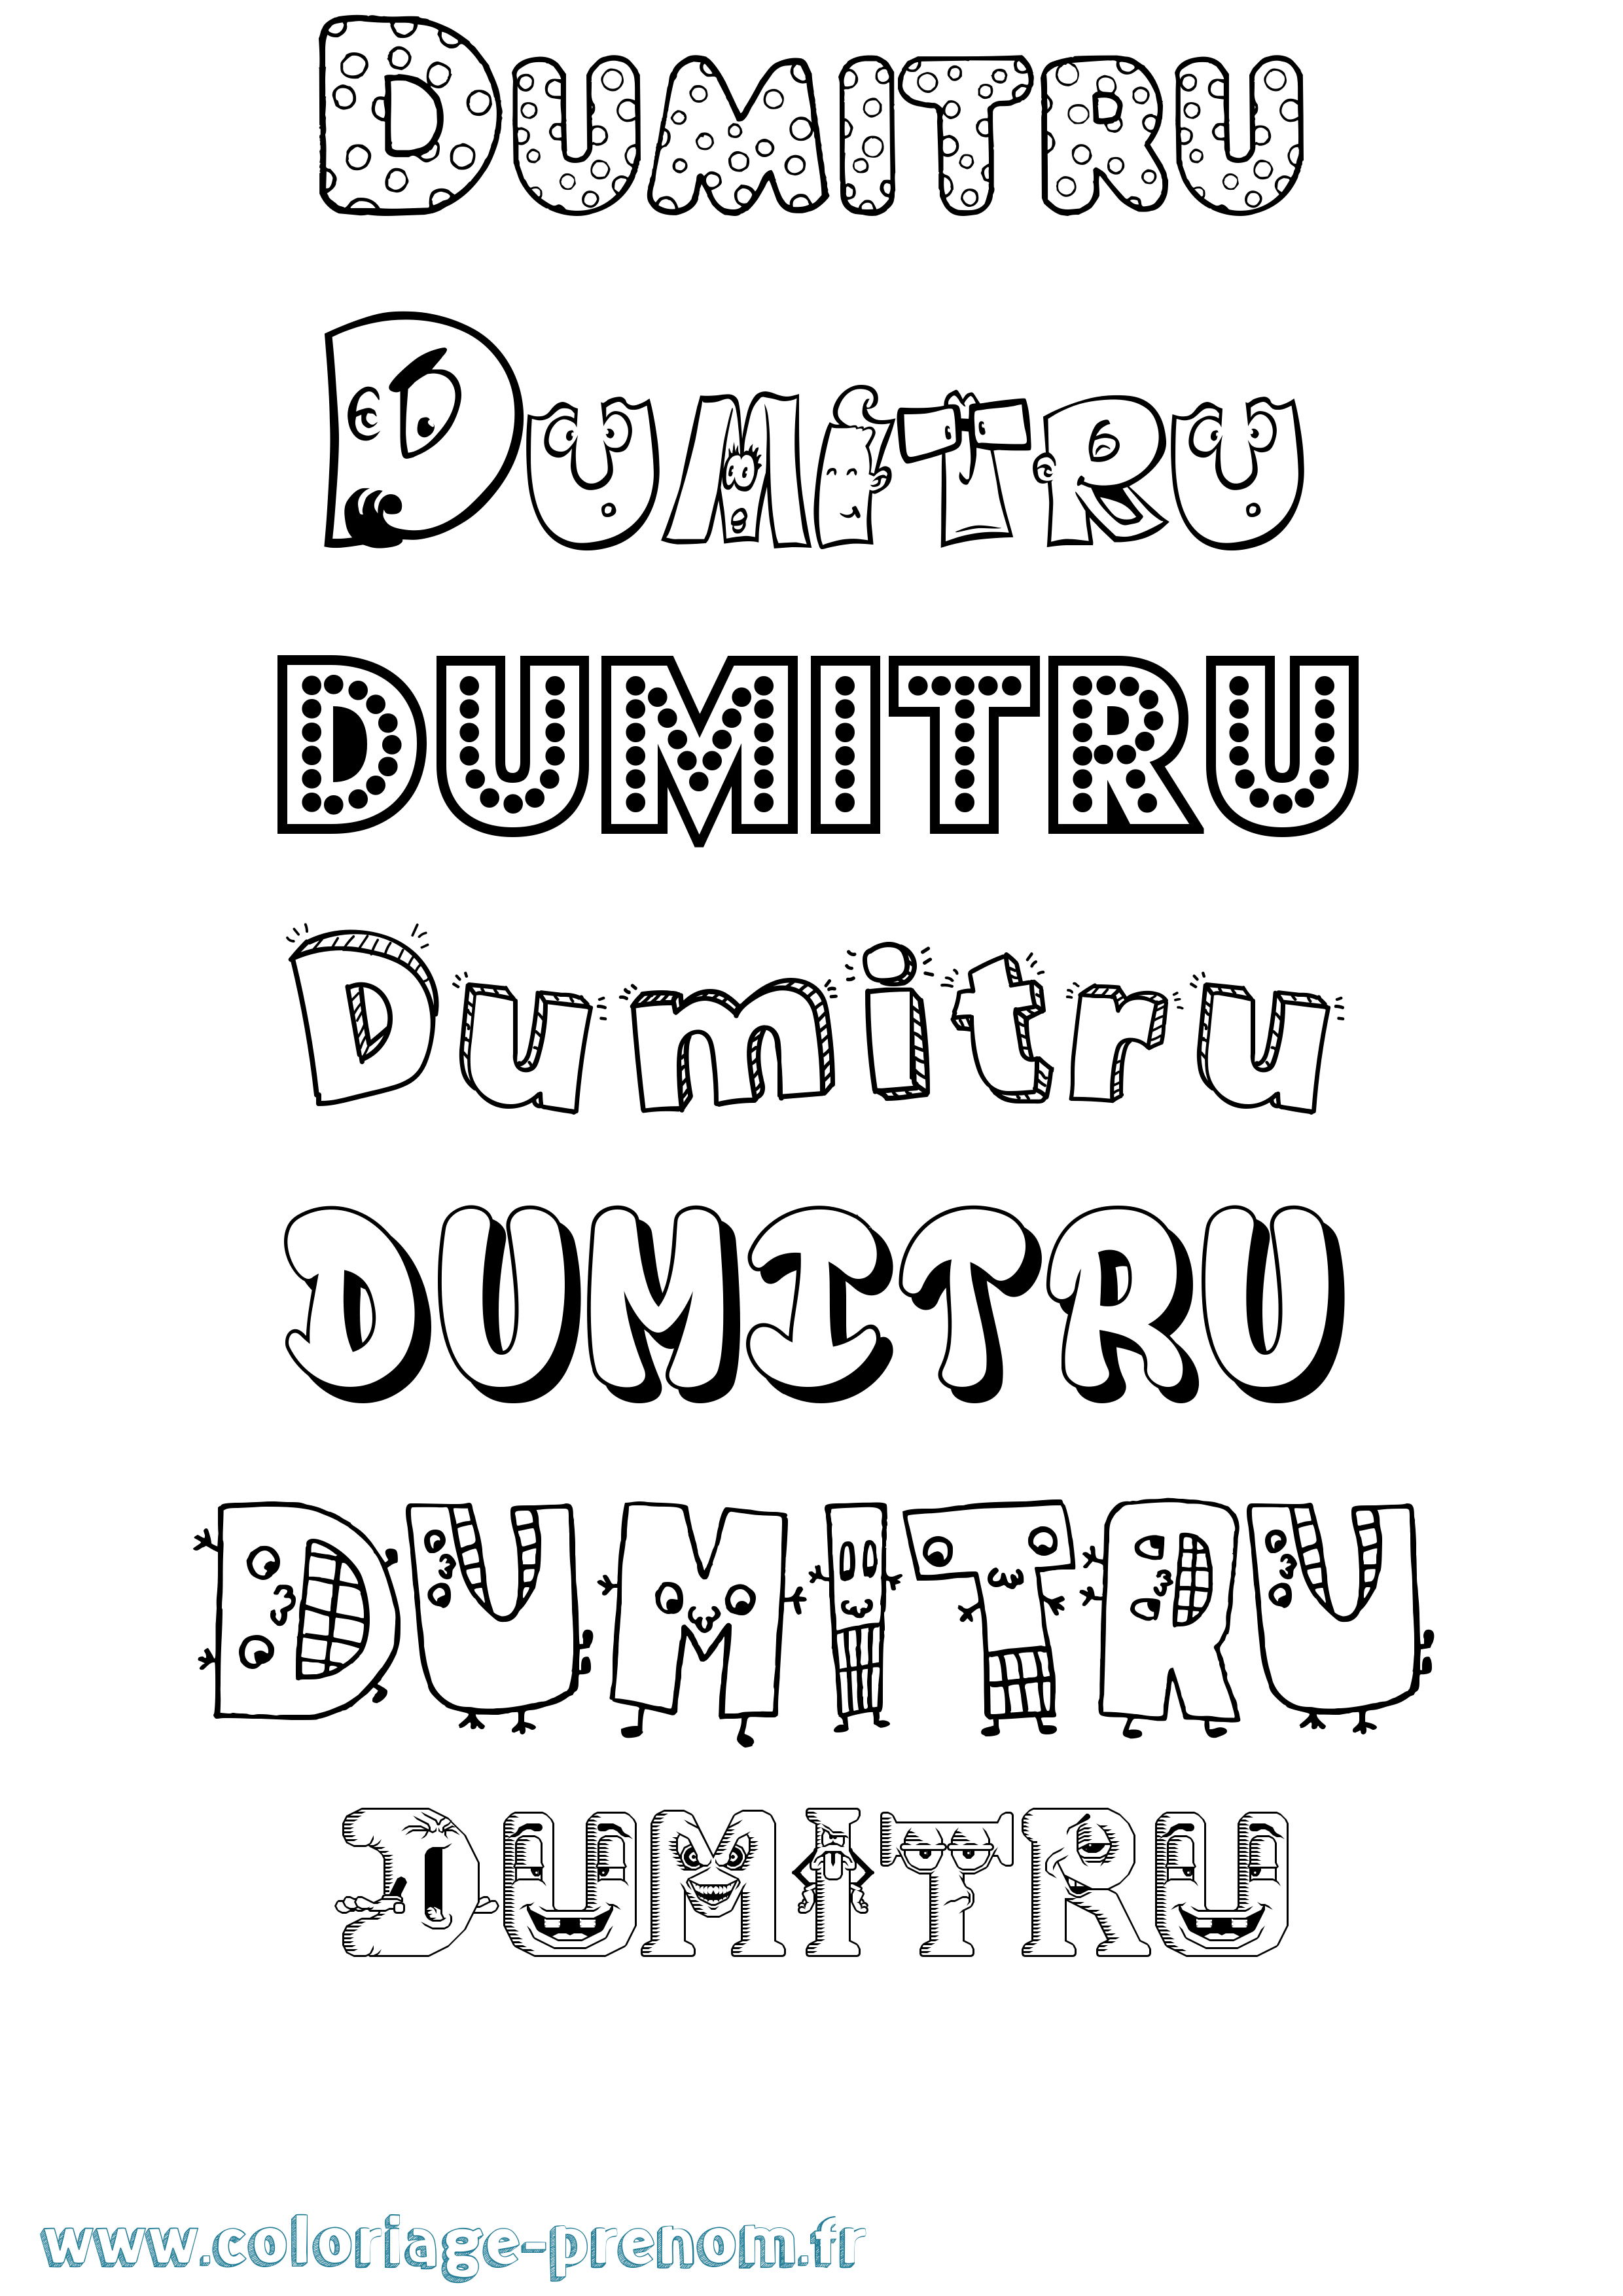 DUMITRU
DUMITRU
DUMITRU
Dumitru
DUMITRU
DUMITRU
DUMITRU
www.coloriage-prenom.fr